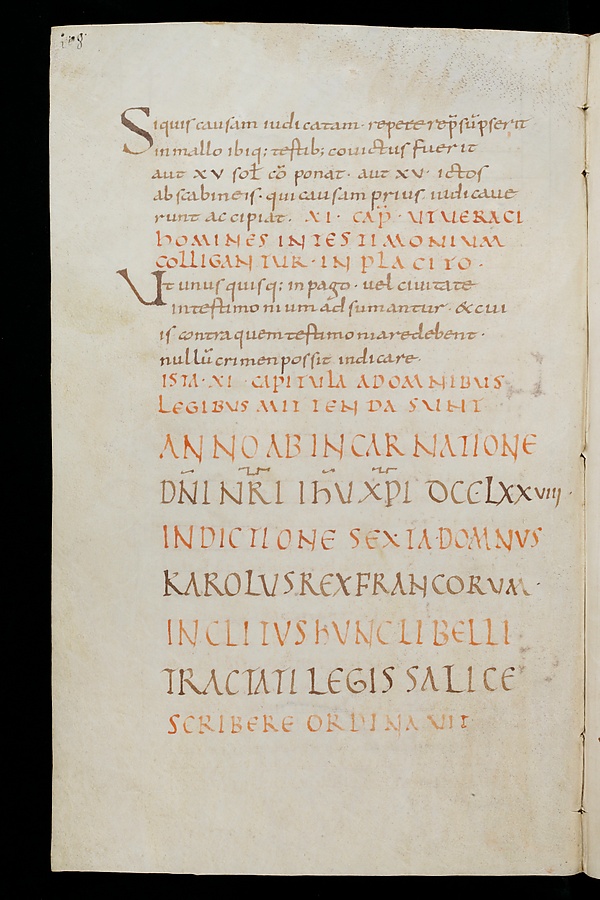 Siquis causam iudicatam· repetere rep̄sūpserit
in mallo ibiq; testib; couictus fuerit
aut xv sol̄ cō ponat· aut xv· ictos
ab scabineis· qui causam prius iudicaue
runt accipiat. XI· CAP̄· UT VERACI
HOMINES IN TESTIMONIUM
COLLIGANTUR· IN PLACITO·
Ut unusquisq; in pago· uel ciuitate
in testimonium adsumantur· &cui
is contra quem testimoniare debent·
nullū crimen possit indicare·
ISTA· XI· CAPITULA AD OMNIBUS
LEGIBUS MITTENDA SUNT
ANNO AB INCARNATIONE
DN̄I NR̄I IHU XPI DCCLXXVIIII·
INDICTIONE SEXTA· DOMNUS
KAROLUS REX FRANCORUM·
INCLITUS HUNC LIBELLI
TRACTATI LEGIS SALICE
SCRIBERE ORDINAVIT